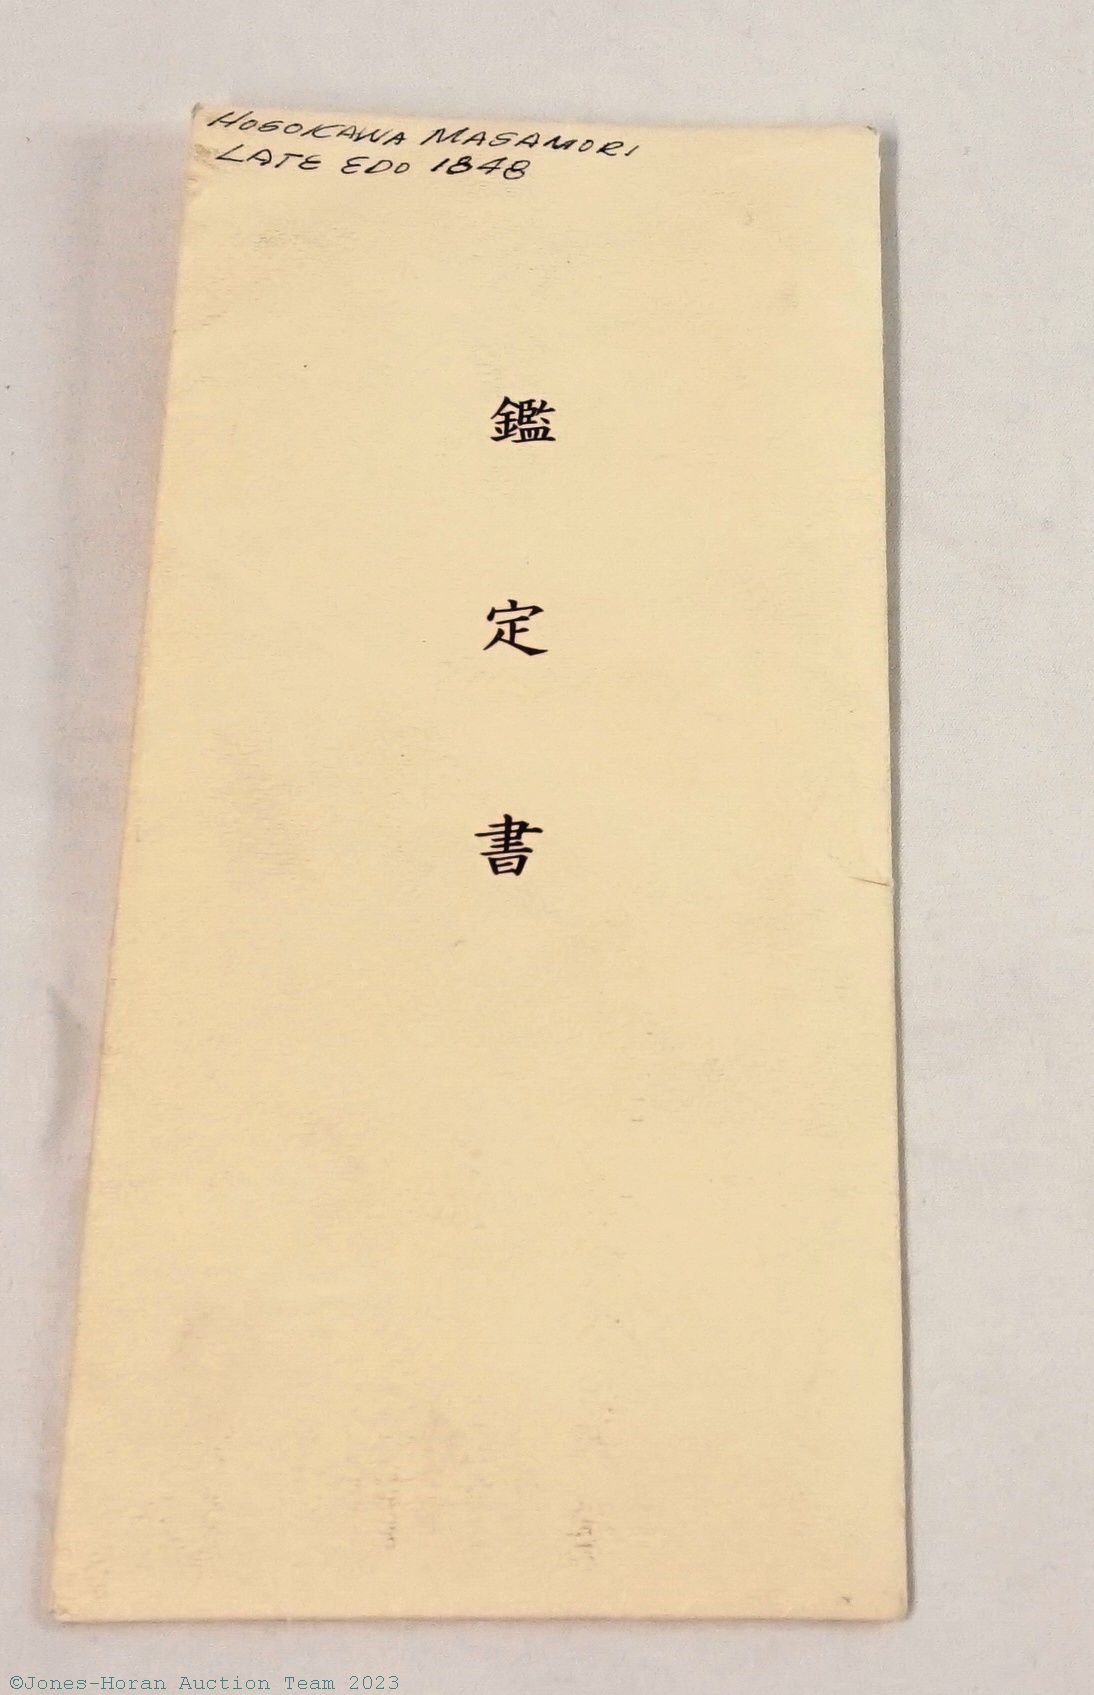 HOSOKAWA MASAMORI
LATE EDO 1848
鑑定書
©Jones-Horan Auction Team 2023